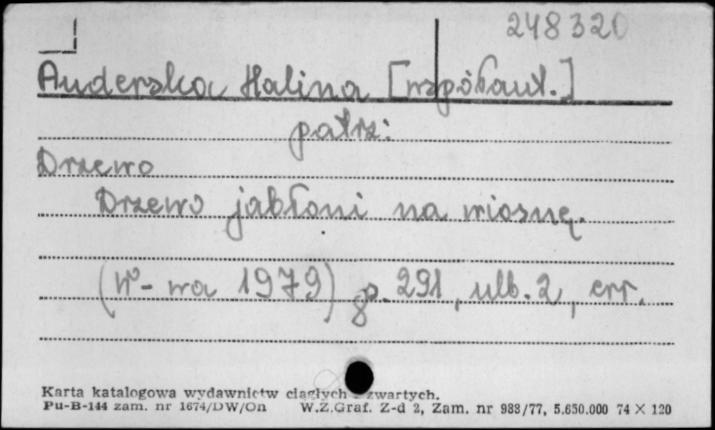 248320
Auderska Halina [współaut.]
patrz:
Drzewo
Drzewo jabłoni na wiosnę.
(W-wa 1979) 8° s. 291, ulb. 2, err.
Karta katalogowa wydawnictw ciągłych i zwartych.
Pu-B-144 zam. nr 1674/DW/On W.Z.Graf. Z-d 2, Zam. nr 988/77, 5.650.000 74 X 120